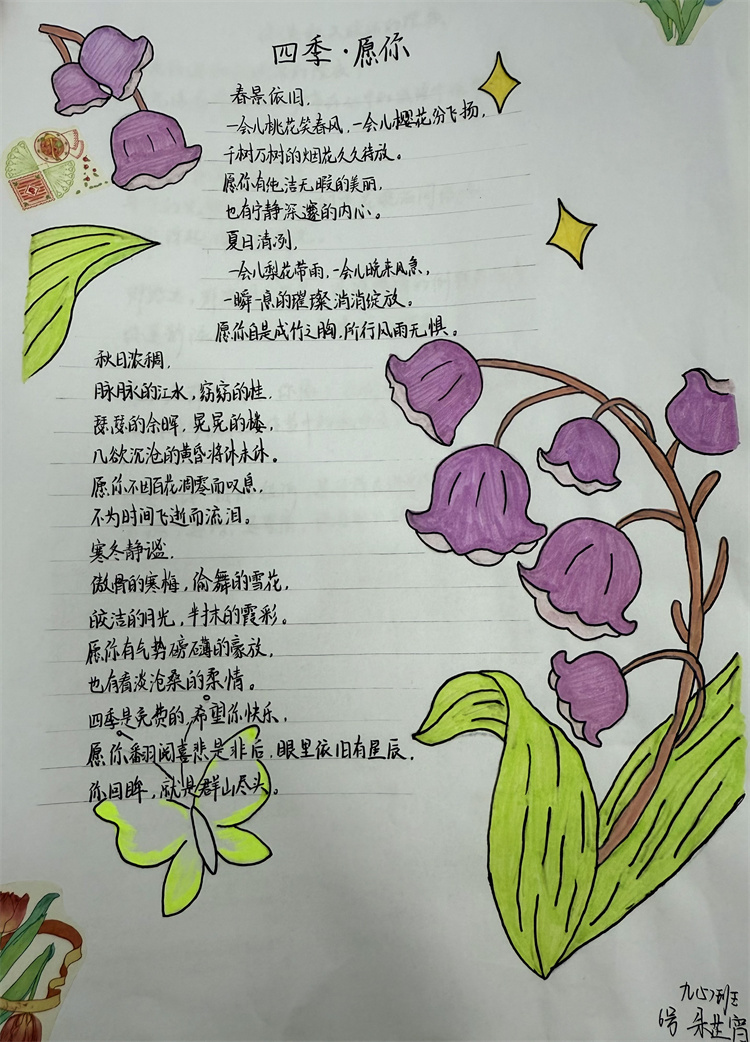 四季·愿你
春景依旧，
一会儿桃花笑春风，一会儿樱花纷飞扬，
千树万树的烟花久久待放。
愿你有纯洁无暇的美丽，
也有宁静深邃的内心。
夏日清冽，
一会儿梨花带雨，一会儿晚来风急，
一瞬一息的璀璨消消绽放。
愿你自是成竹之胸，所行风雨无惧。
秋日浓稠，
脉脉的江水，窈窈的桂，
瑟瑟的余晖，晃晃的榛，
几欲沉沧的黄昏将休未休。
愿你不因百花凋零而叹息，
不为时间飞逝而流泪。
寒冬静谧，
傲骨的寒梅，偷舞的雪花，
皎洁的月光，半抹的霞彩。
愿你有气势磅礴的豪放，
也有看淡沧桑的柔情。
四季是免费的，希望你快乐，
愿你翻阅喜悲是非后，眼里依旧有星辰，
你回眸，就是群山尽头。
班
6号 朱芷宵